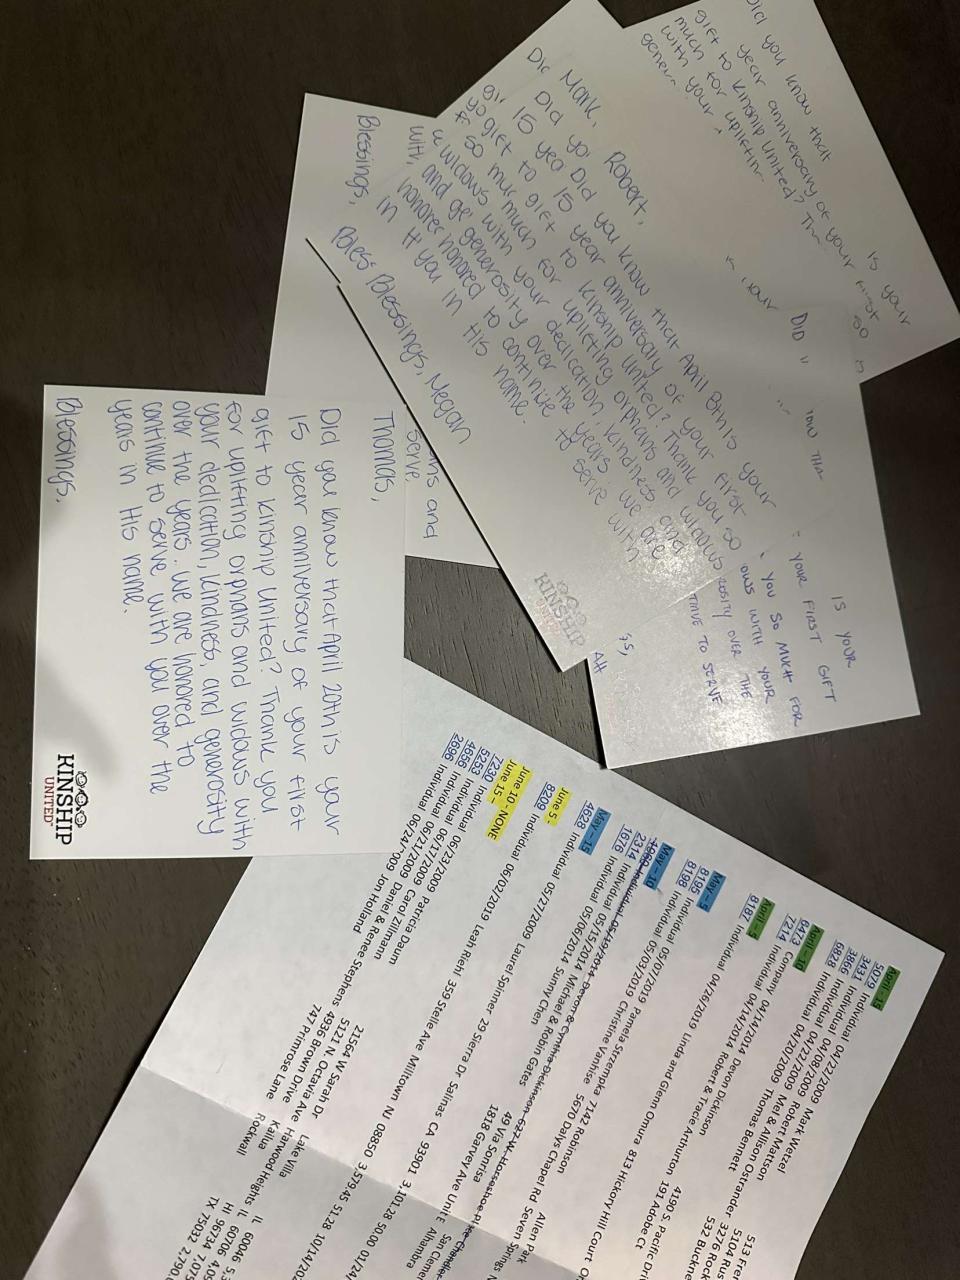 Thomas,
Did you know that April 20th is your
15 year anniversary of your first
gift to Kinship United? Thank you
for uplifting orphans and widows with
your dedication, kindness, and generosity
over the years. We are honored to
continue to serve with you over the
years in His name.
Blessings,
KINSHIP
UNITED
Robert,
Did you know that April 8th is your
15 year anniversary of your first
gift to Kinship United? Thank you so
much for uplifting orphans and widows
with your dedication, kindness and
generosity over the years. We are
honored to continue to serve with
you in His name.
Blessings, Megan
KINSHIP
Mark,
Did you
15 yea
gift to
so mu
widows
and ge
honored
in H
Bles
Blessings,
and
serve
Did you know that is your
year anniversary of your first
gift to Kinship United? so
much for
with your
DID
IS YOUR
YOUR FIRST GIFT
YOU SO MUCH FOR
OWS WITH YOUR
OVER THE
TO SERVE
April - 15
5079 Individual 04/22/2009 Mark Wetzel 513 Fre
3431 Individual 04/08/2009 Robert Mattson 5104 Rus
3866 Individual 04/22/2009 Mel & Allison Ostrander 3276 Rock
6828 Individual 04/20/2009 Thomas Bennett 532 Buckne
April - 10
6473 Company 04/14/2014 Devon Dickinson
7214 Individual 04/14/2014 Robert & Tracie Arthurton 4190 S. Pacific Dri
April - 5
8187 Individual 04/26/2019 Linda and Glenn Omura 813 Hickory Hill Court
May - 5
8195 Individual 05/07/2019 Pamela Strzempka 7142 Robinson Allen Park
8198 Individual 05/03/2019 Christine Vanhise 5670 Dalys Chapel Rd Seven Springs
May - 10
1969 Individual 05/19/2014 Devon & Cynthia Dickinson 627 W. Horseshoe Place Chandler
2314 Individual 05/15/2014 Michael & Robin Gates 49 Via Sonrisa San Clemen
1676 Individual 05/06/2014 Sunny Chen 1818 Garvey Ave Unit E Alhambra
May - 15
4628 Individual 05/27/2009 Laurel Spinner 29 Sierra Dr Salinas CA 93901 3,101.28 50.00 01/24/
June 5 -
8209 Individual 06/02/2019 Leah Riehl 359 Stelle Ave Milltown NJ 08850 3,579.45 51.28 10/14/202
June 10 - NONE
June 15 -
7230 Individual 06/23/2009 Patricia Daum 21564 W Sarah Dr Lake Villa IL 60046
5253 Individual 06/17/2009 Carol Zillmann 5121 N. Octavia Ave Harwood Heights IL 60706
4656 Individual 06/21/2009 Daniel & Renee Stephens 4936 Brown Drive Kailua HI 96734
2696 Individual 06/24/2009 Jon Holland 747 Primrose Lane Rockwall TX 75032